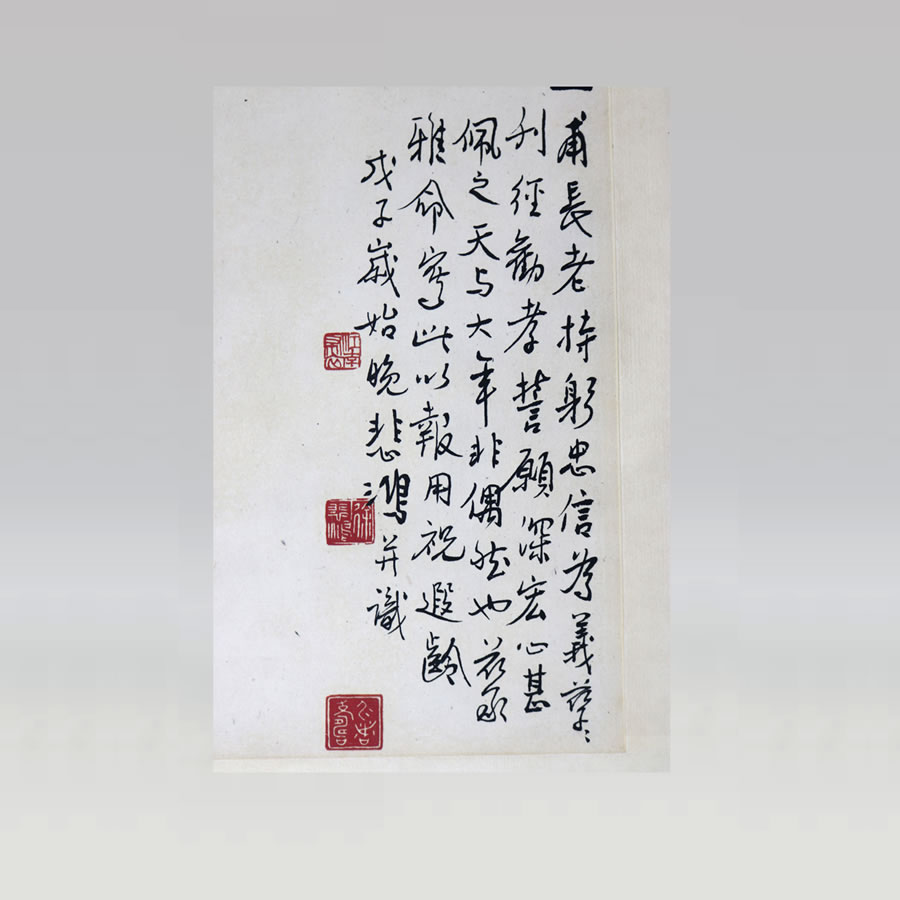 一甫長老持躬忠信為義孳〻
刊經勸孝誓願深宏心甚
佩之天与大年非偶然也茲承
雅命寫此以報用祝遐齡
戊子歲始晚悲鴻并識
江南
徐悲鴻